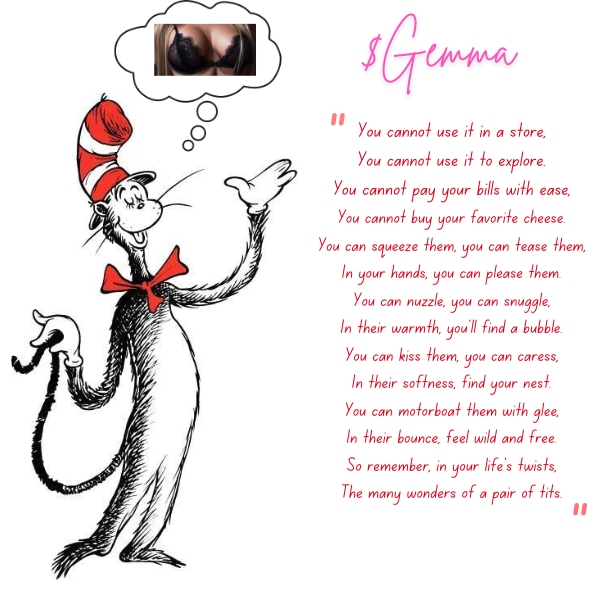 $Gemma
"
You cannot use it in a store,
You cannot use it to explore.
You cannot pay your bills with ease,
You cannot buy your favorite cheese.
You can squeeze them, you can tease them,
In your hands, you can please them.
You can nuzzle, you can snuggle,
In their warmth, you'll find a bubble.
You can kiss them, you can caress,
In their softness, find your nest.
You can motorboat them with glee,
In their bounce, feel wild and free.
So remember, in your life's twists,
The many wonders of a pair of tits.
"